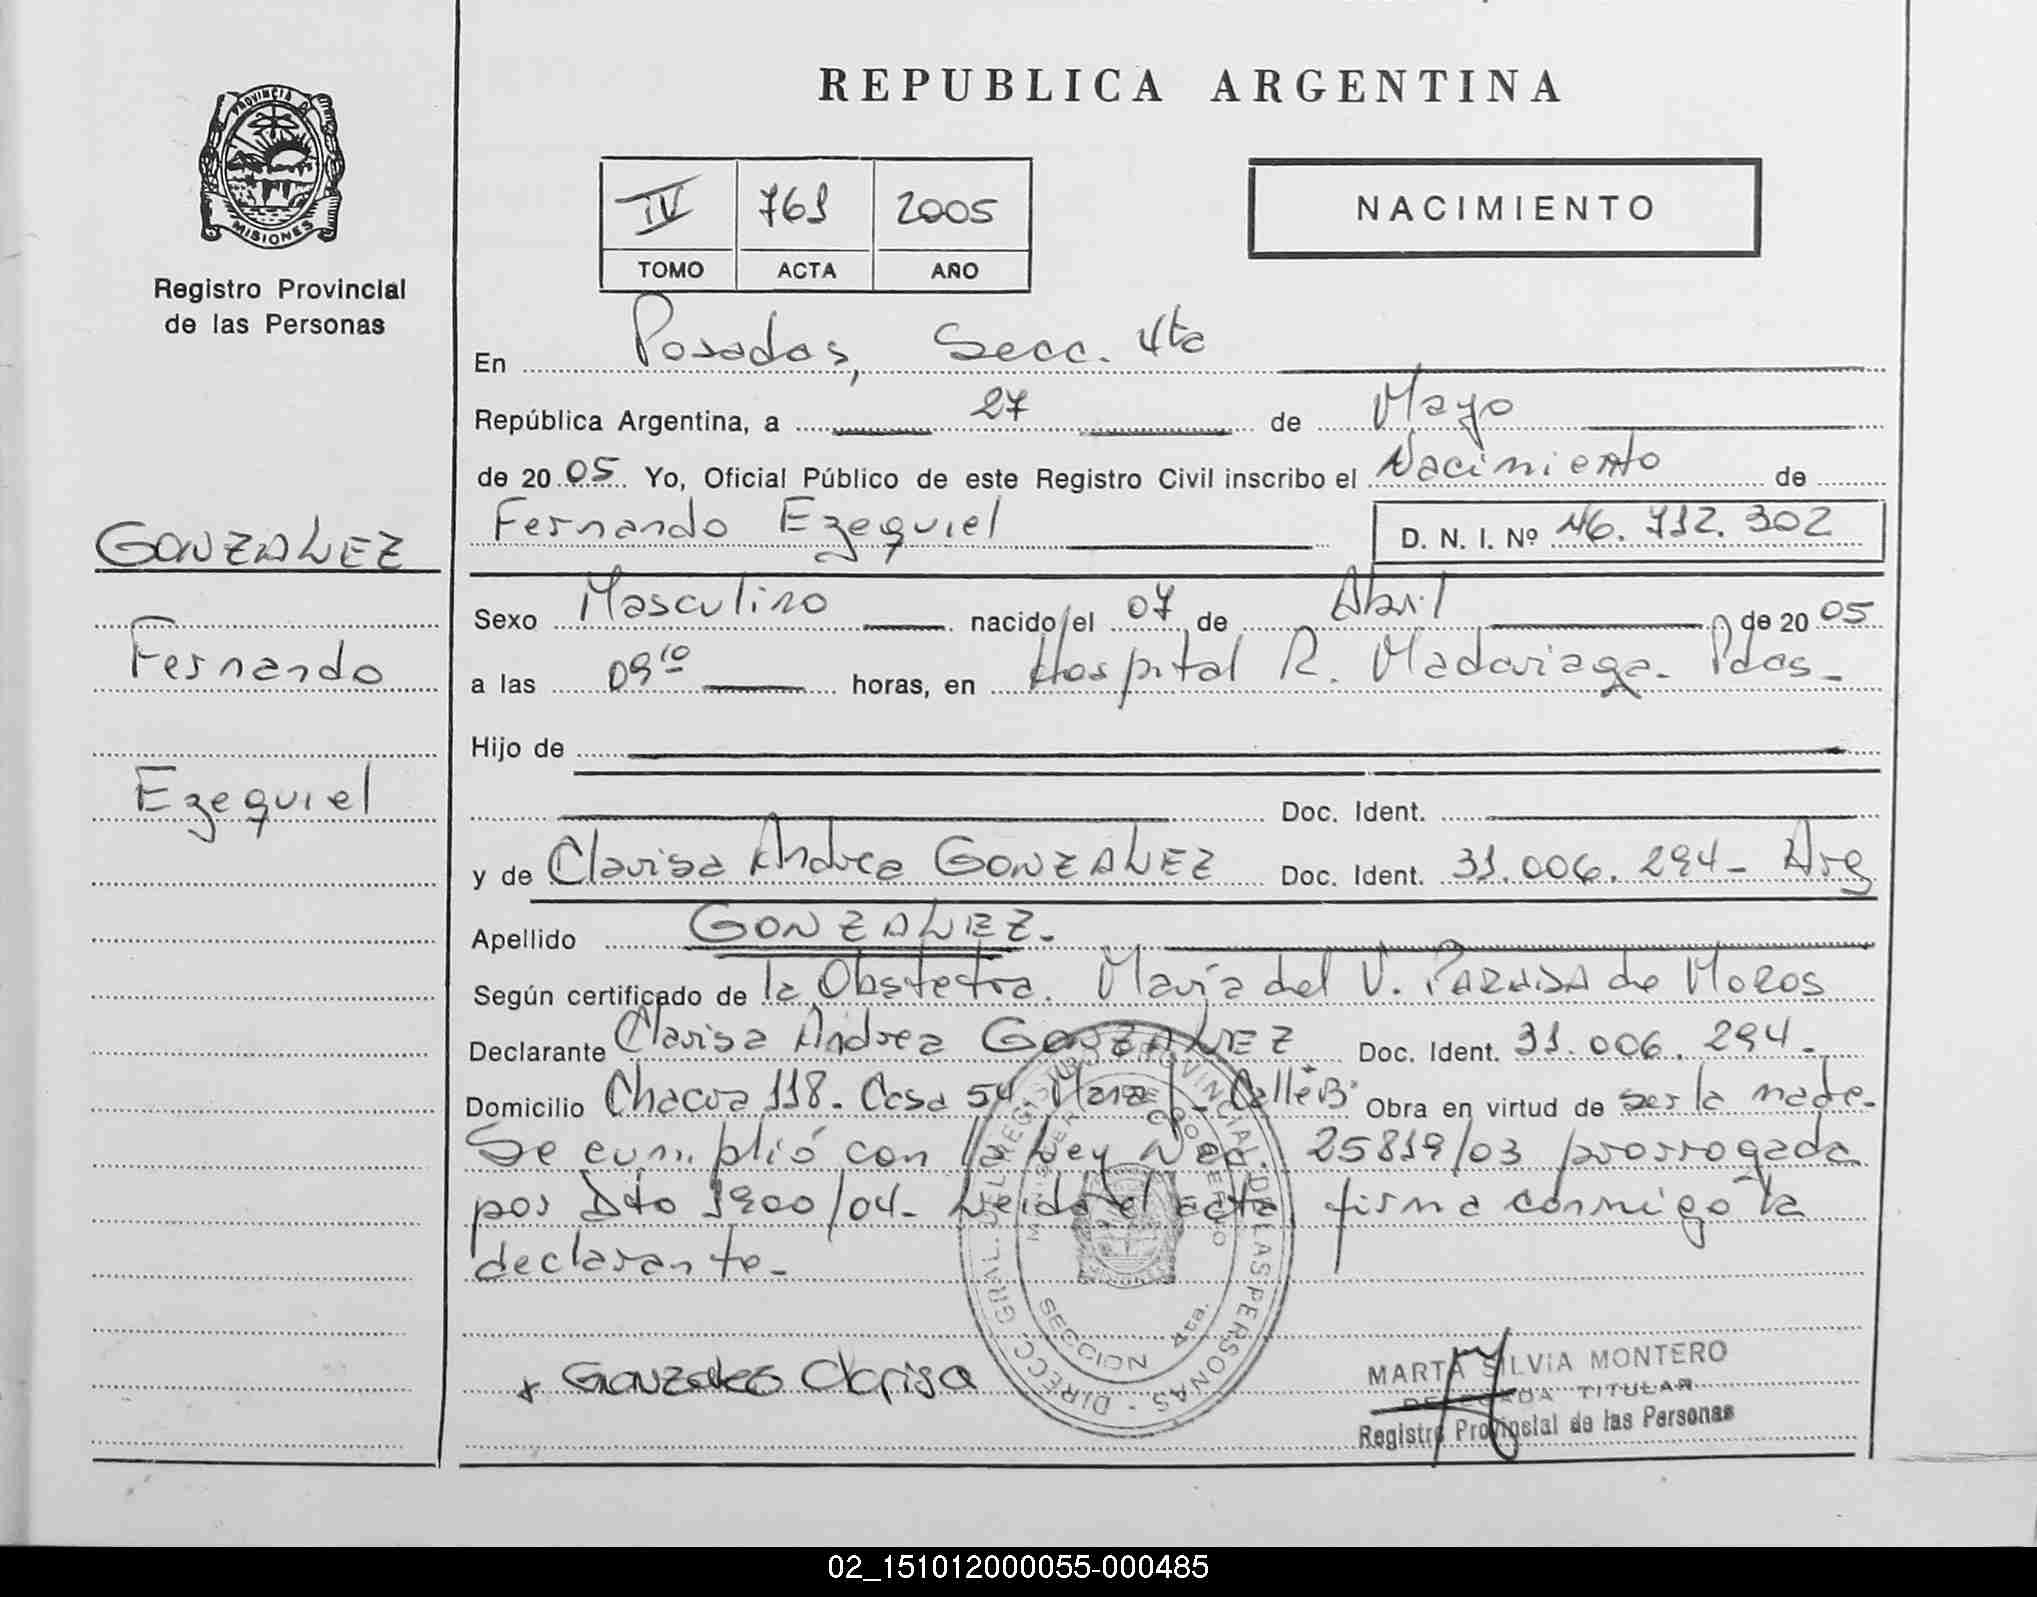 REPUBLICA ARGENTINA
PROVINCIA D
MISIONES
Registro Provincial
de las Personas
IV 769 2005
TOMO ACTA AÑO
NACIMIENTO
En Posadas, Secc. 4ta
República Argentina, a 27 de Mayo
de 2005 Yo, Oficial Público de este Registro Civil inscribo el Nacimiento de
Fernando Ezequiel D. N. I. Nº 46.712.302
GONZALEZ
Fernando
Ezequiel
Sexo Masculino nacido/el 07 de Abril de 2005
a las 09 10 horas, en Hospital R. Madariaga. Pdas-
Hijo de
Doc. Ident.
y de Clarisa Andrea GONZALEZ Doc. Ident. 31.006.294- Arg
Apellido GONZALEZ.-
Según certificado de la Obstetra. María del V. de MOROS
Declarante Clarisa Andrea GONZALEZ Doc. Ident. 31.006.294.-
Domicilio Chacra 118. Casa 54. Calle B Obra en virtud de ser la madre.
Se cumplió con la Ley Nac. 25819/03 prorrogada
por Dto 1900/04- Leida el acta firma conmigo la
declarante-
DIRECC. GRAL. DEL REGISTRO PROVINCIAL DE LAS PERSONAS
SECCION 4ta.
Gonzalez Clarisa
MARTA SILVIA MONTERO
DELEGADA TITULAR
Registro Provincial de las Personas
02_151012000055-000485